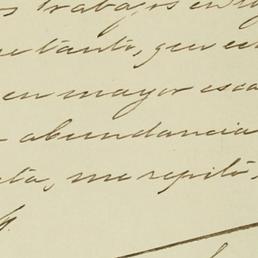 trabajos en
tanto, que en
en mayor esca
abundancia
ta, me repito